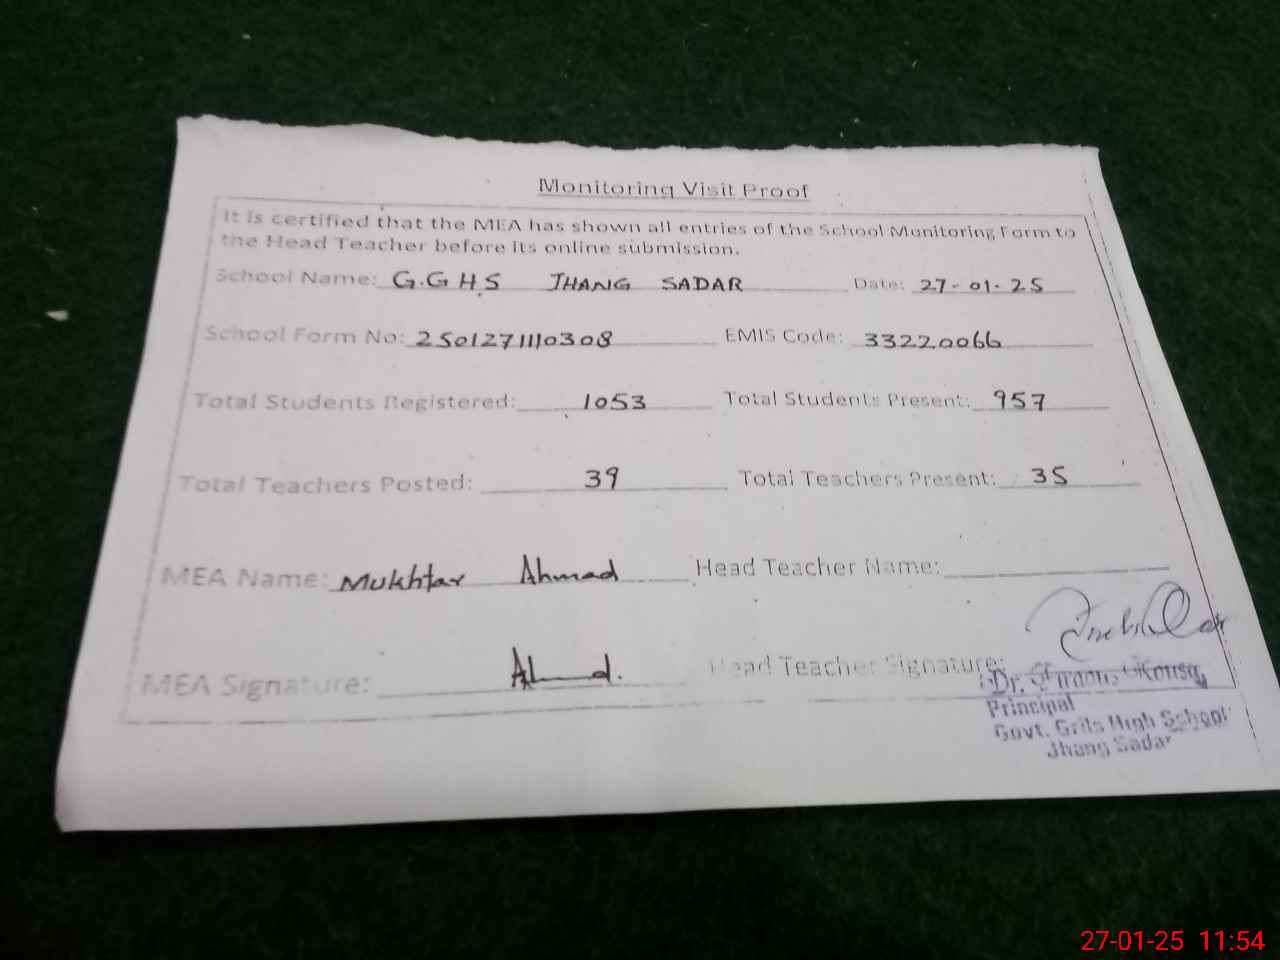 Monitoring Visit Proof
It is certified that the MEA has shown all entries of the School Monitoring Form to
the Head Teacher before its online submission.
School Name: G.G H.S JHANG SADAR Date: 27-01-25
School Form No: 2501271110308 EMIS Code: 33220066
Total Students Registered: 1053 Total Students Present: 957
Total Teachers Posted: 39 Total Teachers Present: 35
MEA Name: Mukhtar Ahmad Head Teacher Name:
MEA Signature: Ahmad. Head Teacher Signature:
Dr.
Principal
Govt. Grils High School
Jhang Sadar
27-01-25 11:54